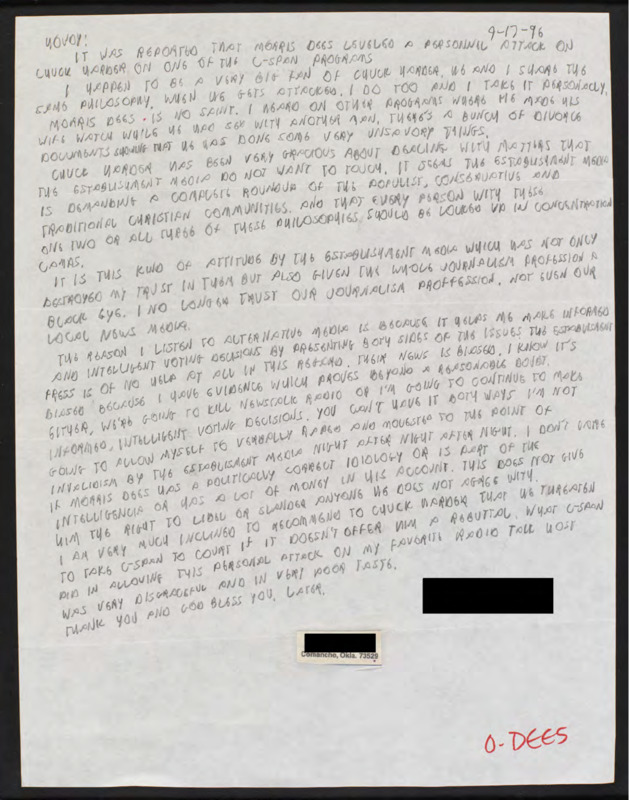 9-17-96
HOWDY!
IT WAS REPORTED THAT MORRIS DEES LEVELED A PERSONNIL ATTACK ON
CHUCK HARDER ON ONE OF THE C-SPAN PROGRAMS
I HAPPEN TO BE A VERY BIG FAN OF CHUCK HARDER. HE AND I SHARE THE
SAME PHILOSOPHY. WHEN HE GETS ATTACKED. I DO TOO AND I TAKE IT PERSONALY.
MORRIS DEES. IS NO SAINT. I HEARD ON OTHER PROGRAMS WHERE HE MADE HIS
WIFE WATCH WHILE HE HAD SEX WITH ANOTHER MAN. THERE'S A BUNCH OF DIVORCE
DOCUMENTS SHOWING THAT HE HAS DONE SOME VERY UNSAVORY THINGS.
CHUCK HARDER HAS BEEN VERY GRACIOUS ABOUT DEALING WITH MATTERS THAT
THE ESTABLISHMENT MEDIA DO NOT WANT TO TOUCH. IT SEEMS THE ESTABLISHMENT MEDIA
IS DEMANDING A COMPLETE ROUNDUP OF THE POPULIST, CONSERVATIVE AND
TRADITIONAL CHRISTIAN COMMUNITIES. AND THAT EVERY PERSON WITH THESE
ONE TWO OR ALL THREE OF THESE PHILOSOPHIES SHOULD BE LOCKED UP IN CONCENTRATION
CAMPS.
IT IS THIS KIND OF ATTITUDE BY THE ESTABLISHMENT MEDIA WHICH HAS NOT ONLY
DESTROYED MY TRUST IN THEM BUT ALSO GIVEN THE WHOLE JOURNALISM PROFESSION A
BLACK EYE. I NO LONGER TRUST OUR JOURNALISM PROFFESSION. NOT EVEN OUR
LOCAL NEWS MEDIA.
THE REASON I LISTEN TO ALTERNATIVE MEDIA IS BECAUSE IT HELPS ME MAKE INFORMED
AND INTELLIGENT VOTING DECISIONS BY PRESENTING BOTH SIDES OF THE ISSUES THE ESTABLISHMENT
PRESS IS OF NO HELP AT ALL IN THIS REGARD. THEIR NEWS IS BIASED. I KNOW IT'S
BIASED BECAUSE I HAVE EVIDENCE WHICH PROVES BEYOND A REASONABLE DOUBT.
EITHER, WE'RE GOING TO KILL NEWSTALK RADIO OR I'M GOING TO CONTINUE TO MAKE
INFORMED, INTELLIGENT VOTING DECISIONS. YOU CAN'T HAVE IT BOTH WAYS I'M NOT
GOING TO ALLOW MYSELF TO VERBALLY RAPED AND MOLESTED TO THE POINT OF
INVALIDISM BY THE ESTABLISMENT MEDIA NIGHT AFTER NIGHT AFTER NIGHT. I DON'T CARE
IF MORRIS DEES HAS A POLITICALLY CORRECT IDIOLOGY OR IS PART OF THE
INTELLIGENCIA OR HAS A LOT OF MONEY IN HIS ACCOUNT. THIS DOES NOT GIVE
HIM THE RIGHT TO LIBEL OR SLANDER ANYONE HE DOES NOT AGREE WITH.
I AM VERY MUCH INCLINED TO RECOMMEND TO CHUCK HARDER THAT HE THREATEN
TO TAKE C-SPAN TO COURT IF IT DOESN'T OFFER HIM A REBUTTAL. WHAT C-SPAN
DID IN ALLOVING THIS PERSONAL ATTACK ON MY FAVORITE RADIO TALK HOST
WAS VERY DISGRACEFUL AND IN VERY POOR TASTE.
THANK YOU AND GOD BLESS YOU. LATER.
Comanche, Okla. 73529
O-DEES